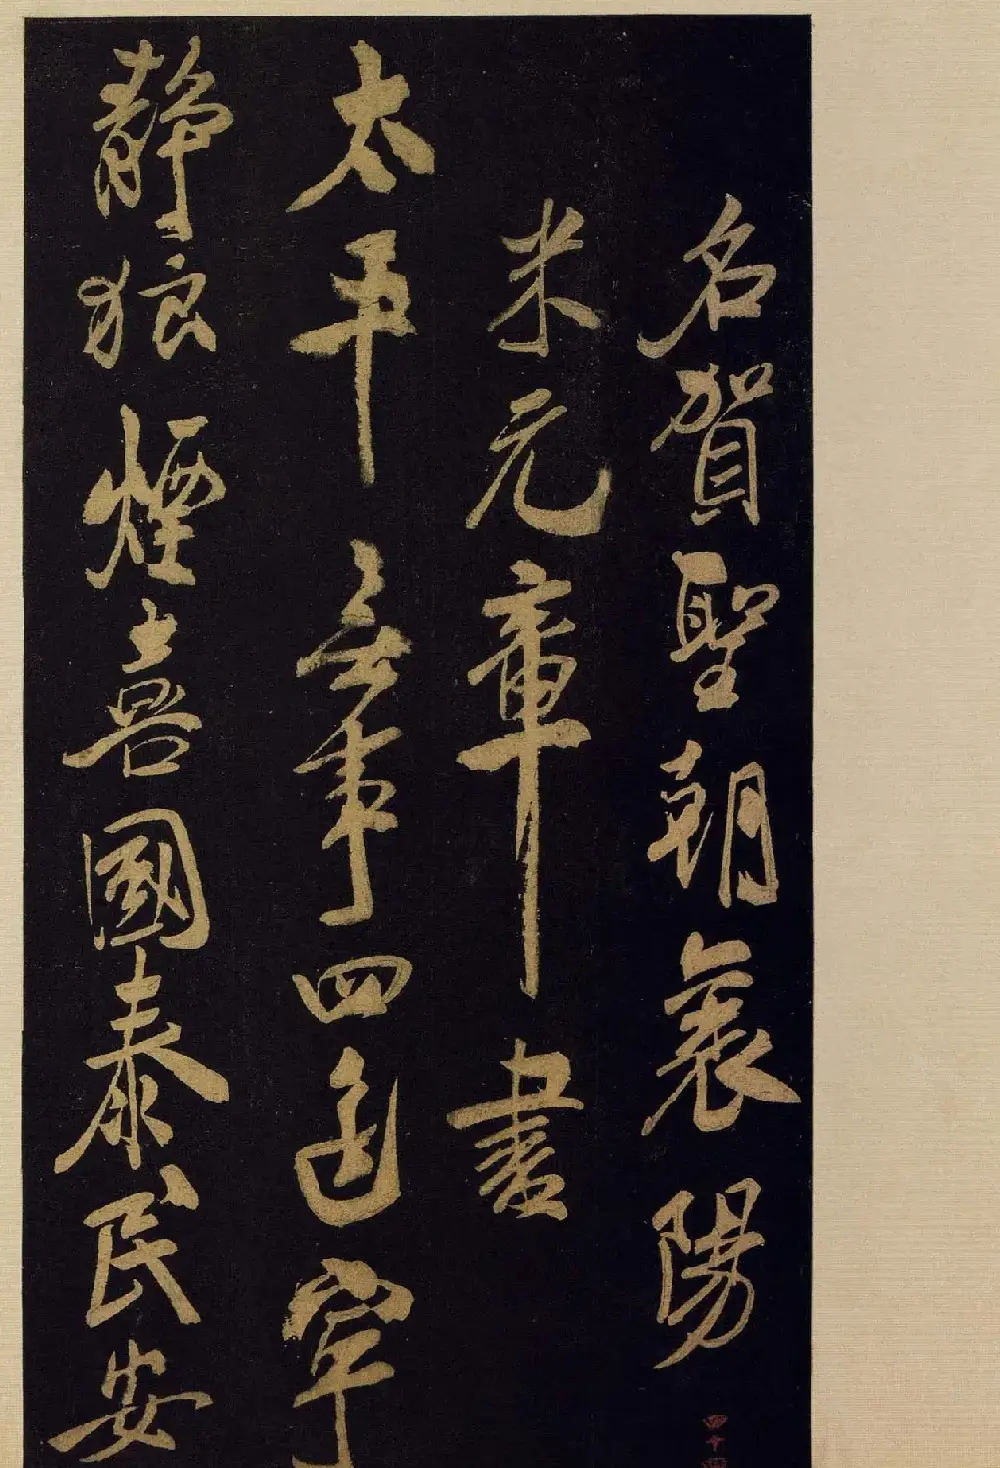 名賀聖朝襄陽
米元章書
太平無事四邊寧
靜狼煙喜國泰民安
四十四